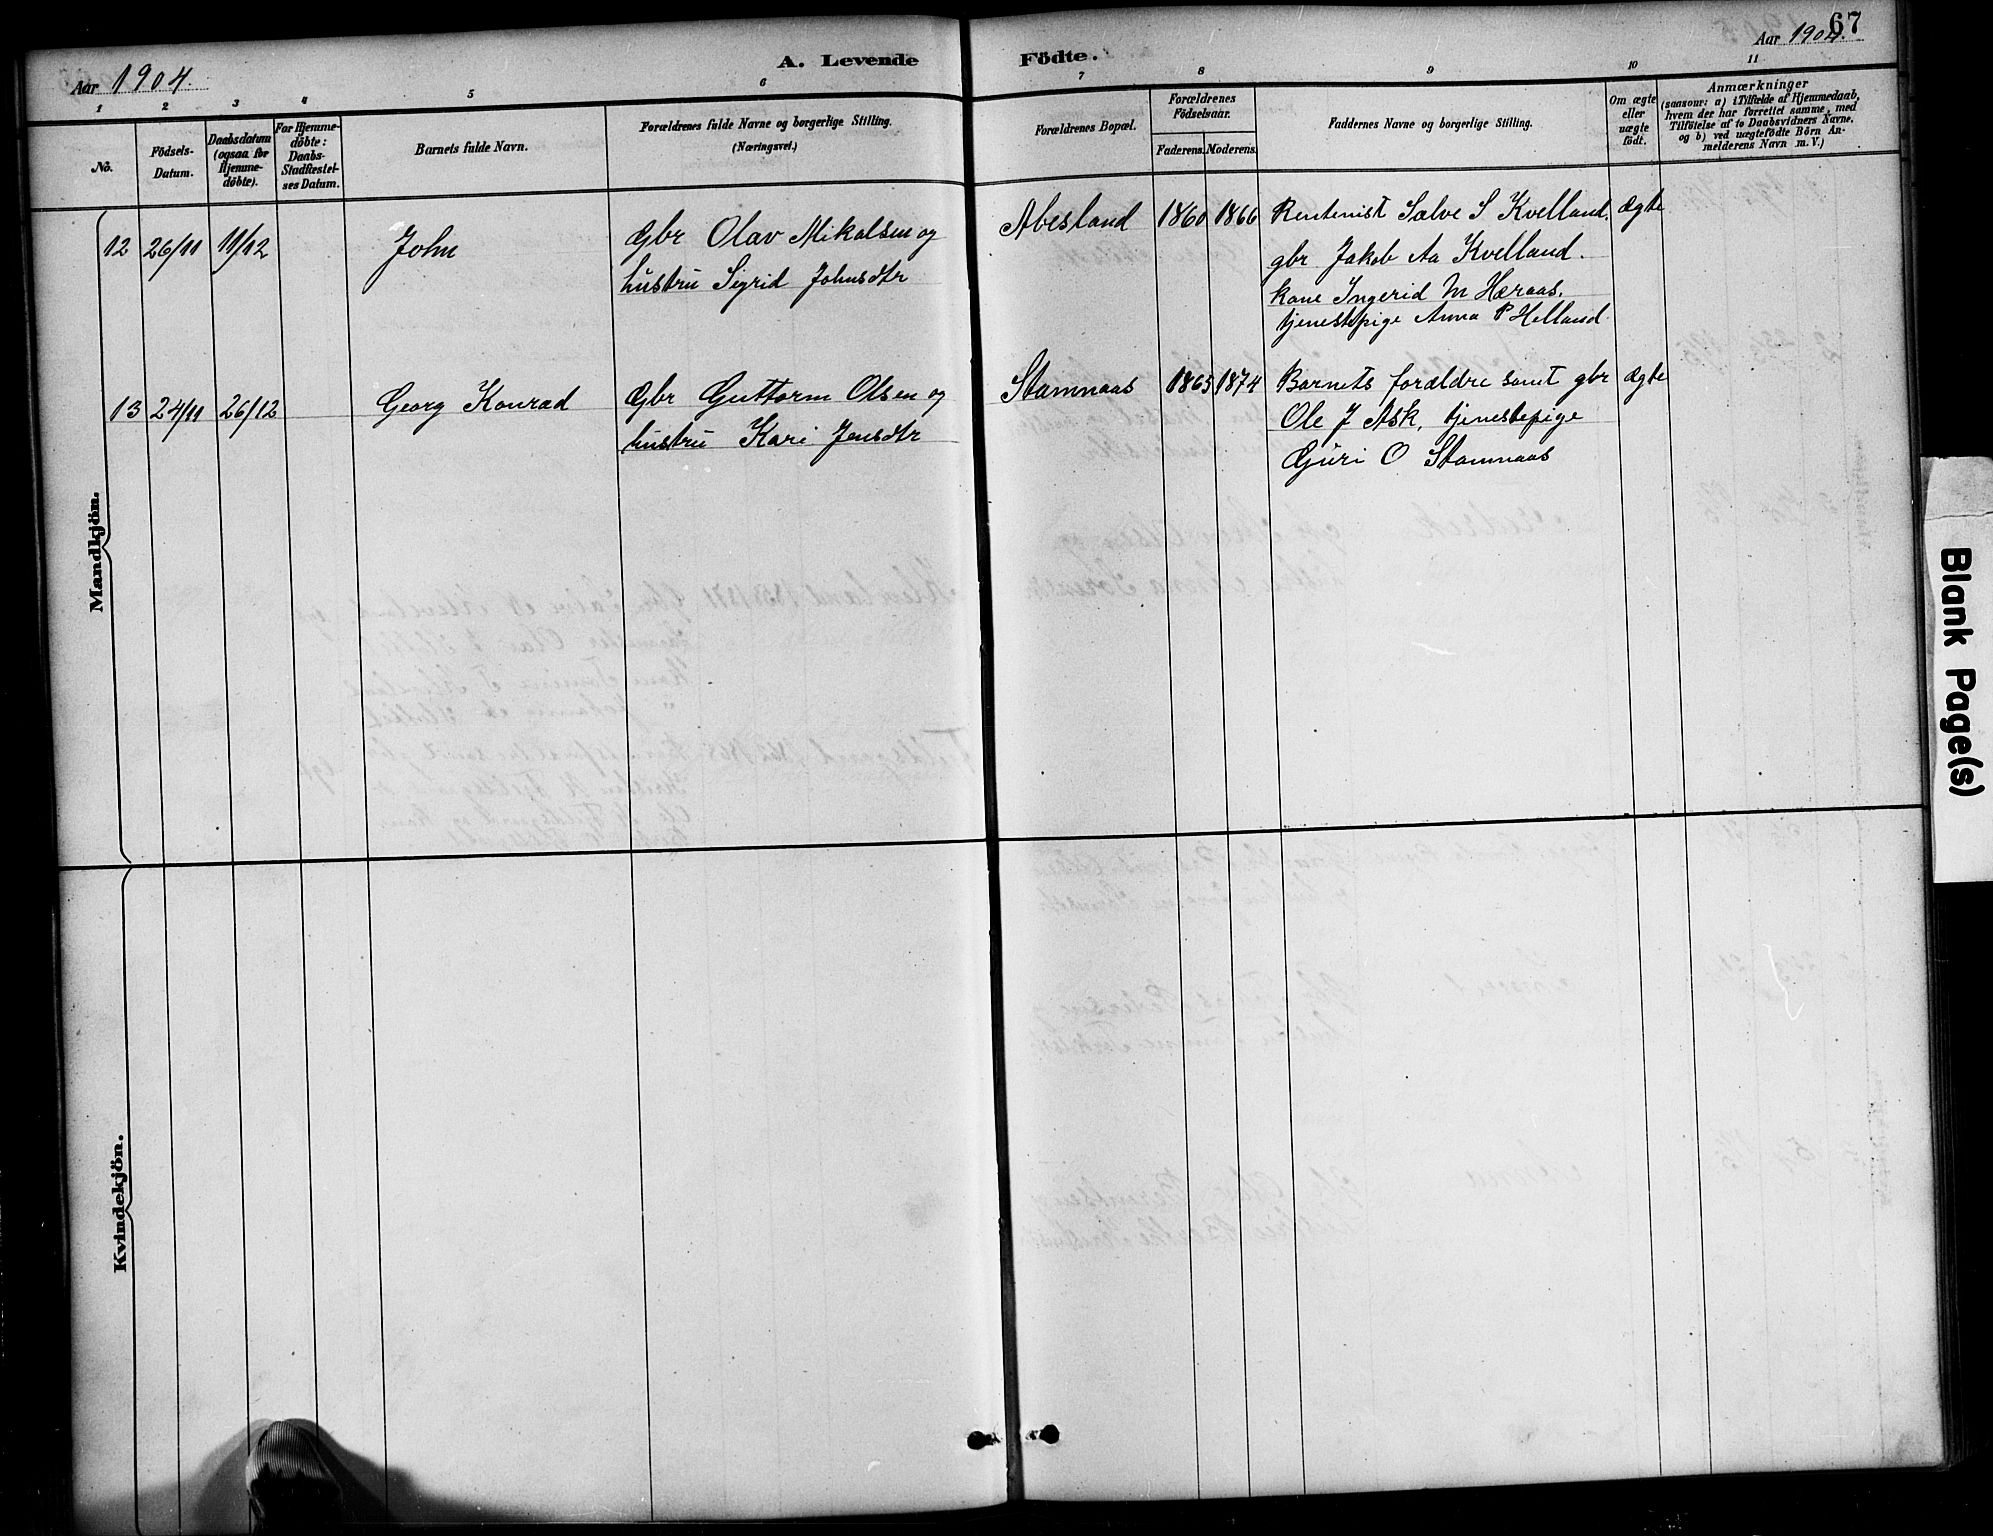 67
Aar 1904.
A. Levende Födte.
Aar 1904.
1 2 3 4 5 6 7 8 9 10 11
No.
Födsels-
Datum.
Daabsdatum
(ogsaa for
Hjemme-
döbte).
For Hjemme-
döbte:
Daabs-
Stadfæstel-
ses Datum.
Barnets fulde Navn.
Forældrenes fulde Navne og borgerlige Stilling.
(Næringsvei.)
Forældrenes Bopæl.
Forældrenes
Födselsaar.
Faderens. Moderens.
Faddernes Navne og borgerlige Stilling.
Om ægte
eller
uægte
født.
Anmærkninger
(saasom: a) i Tilfælde af Hjemmedaab,
hvem der har forrettet samme, med
Tilföielse af to Daabsvidners Navne,
og b) ved uægtefödte Börn An-
melderens Navn m. V.)
Mandkjön.
12 26/11 11/12 John Gbr Olav Mikalsen og Abesland 1860 1866 Rentenist Salve S Kvelland. Ægte
hustru Sigrid Johnsdtr gbr Jakob Aa Kvelland.
kone Ingerid M Hæraas.
tjenestepige Anna P Helland
13 24/11 26/12 Georg Konrad Gbr Guttorm Olsen og Stamnaas 1863 1874 Barnets forældre samt gbr Ægte
hustru Kari Jensdtr Ole J Ask, tjenestepige
Guri O Stamnaas
Kvindekjön.
Blank Page(s)